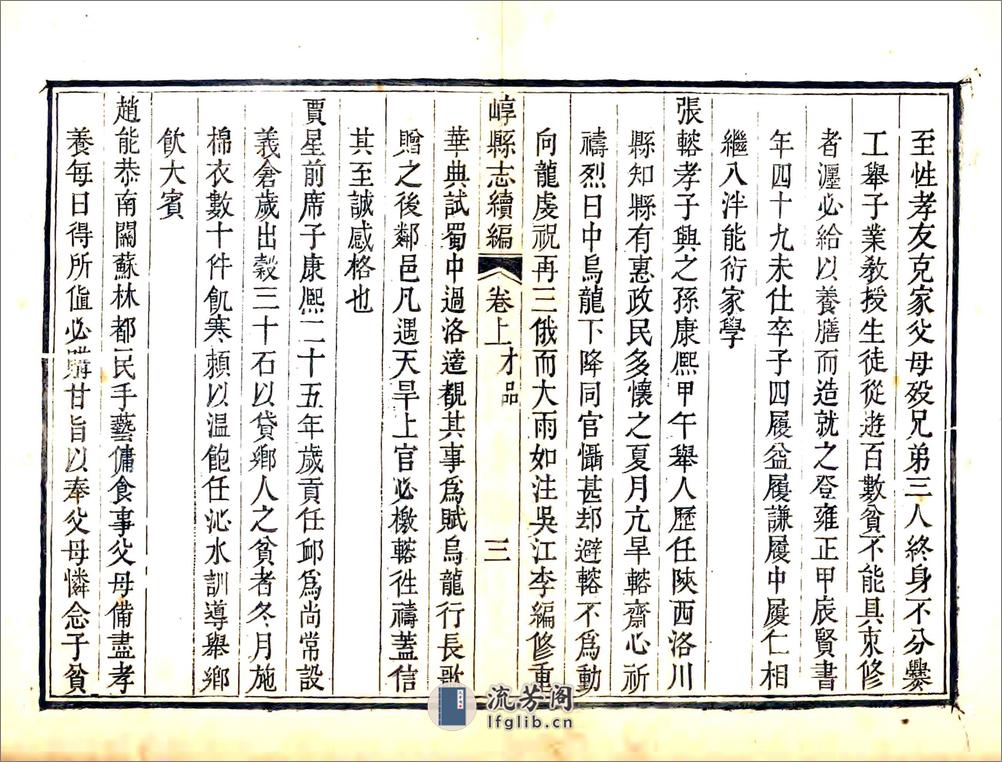 至性孝友克家父母殁兄弟三人終身不分爨
工舉子業教授生徒從遊百數貧不能具束修
者瀊必給以養膳而造就之登雍正甲辰賢書
年四十九未仕卒子四履益履謙履中履仁相
繼入泮能衍家學
張輅孝子興之孫康熙甲午舉人歷任陝西洛川
縣知縣有惠政民多懷之夏月亢旱輅齋心祈
禱烈日中烏龍下降同官懾甚却避輅不為動
向龍虔祝再三俄而大雨如注吳江李編修重
崞縣志續編 卷上 才品 三
華典試蜀中過洛遘覩其事為賦烏龍行長歌
贈之後鄰邑凡遇天旱上官必檄輅徃禱蓋信
其至誠感格也
賈星前席子康熙二十五年歲貢任邱為尚常設
義倉歲出穀三十石以貸鄉人之貧者冬月施
棉衣數十件飢寒賴以温飽任沁水訓導舉鄉
飲大賓
趙能恭南關蘇林都民手藝傭食事父母備盡孝
養每日得所值必購甘旨以奉父母憐念子貧
流芳阁
lfglib.cn